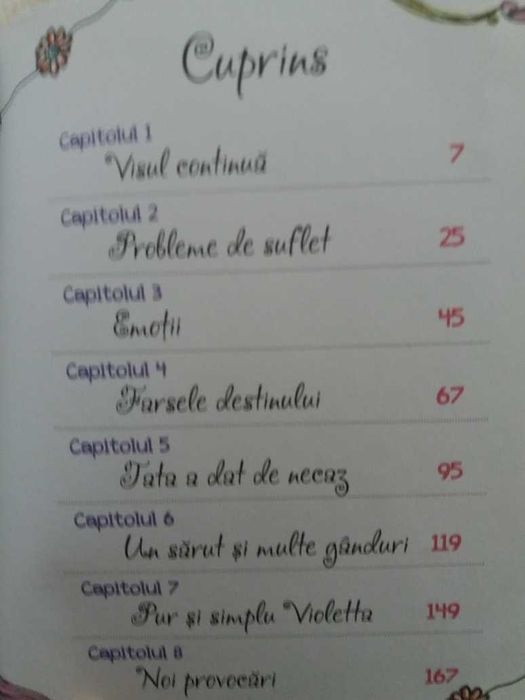 Cuprins
Capitolul 1
Visul continuă 7
Capitolul 2
Probleme de suflet 25
Capitolul 3
Emoții 45
Capitolul 4
Farsele destinului 67
Capitolul 5
Tata a dat de necaz 95
Capitolul 6
Un sărut și multe gânduri 119
Capitolul 7
Pur și simplu Violetta 149
Capitolul 8
Noi provocări 167